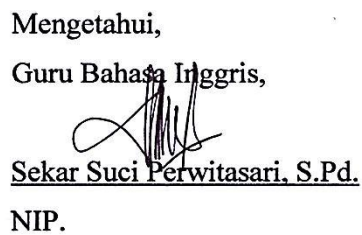 Mengetahui,
Guru Bahasa Inggris,
Sekar Suci Perwitasari, S.Pd.
NIP.